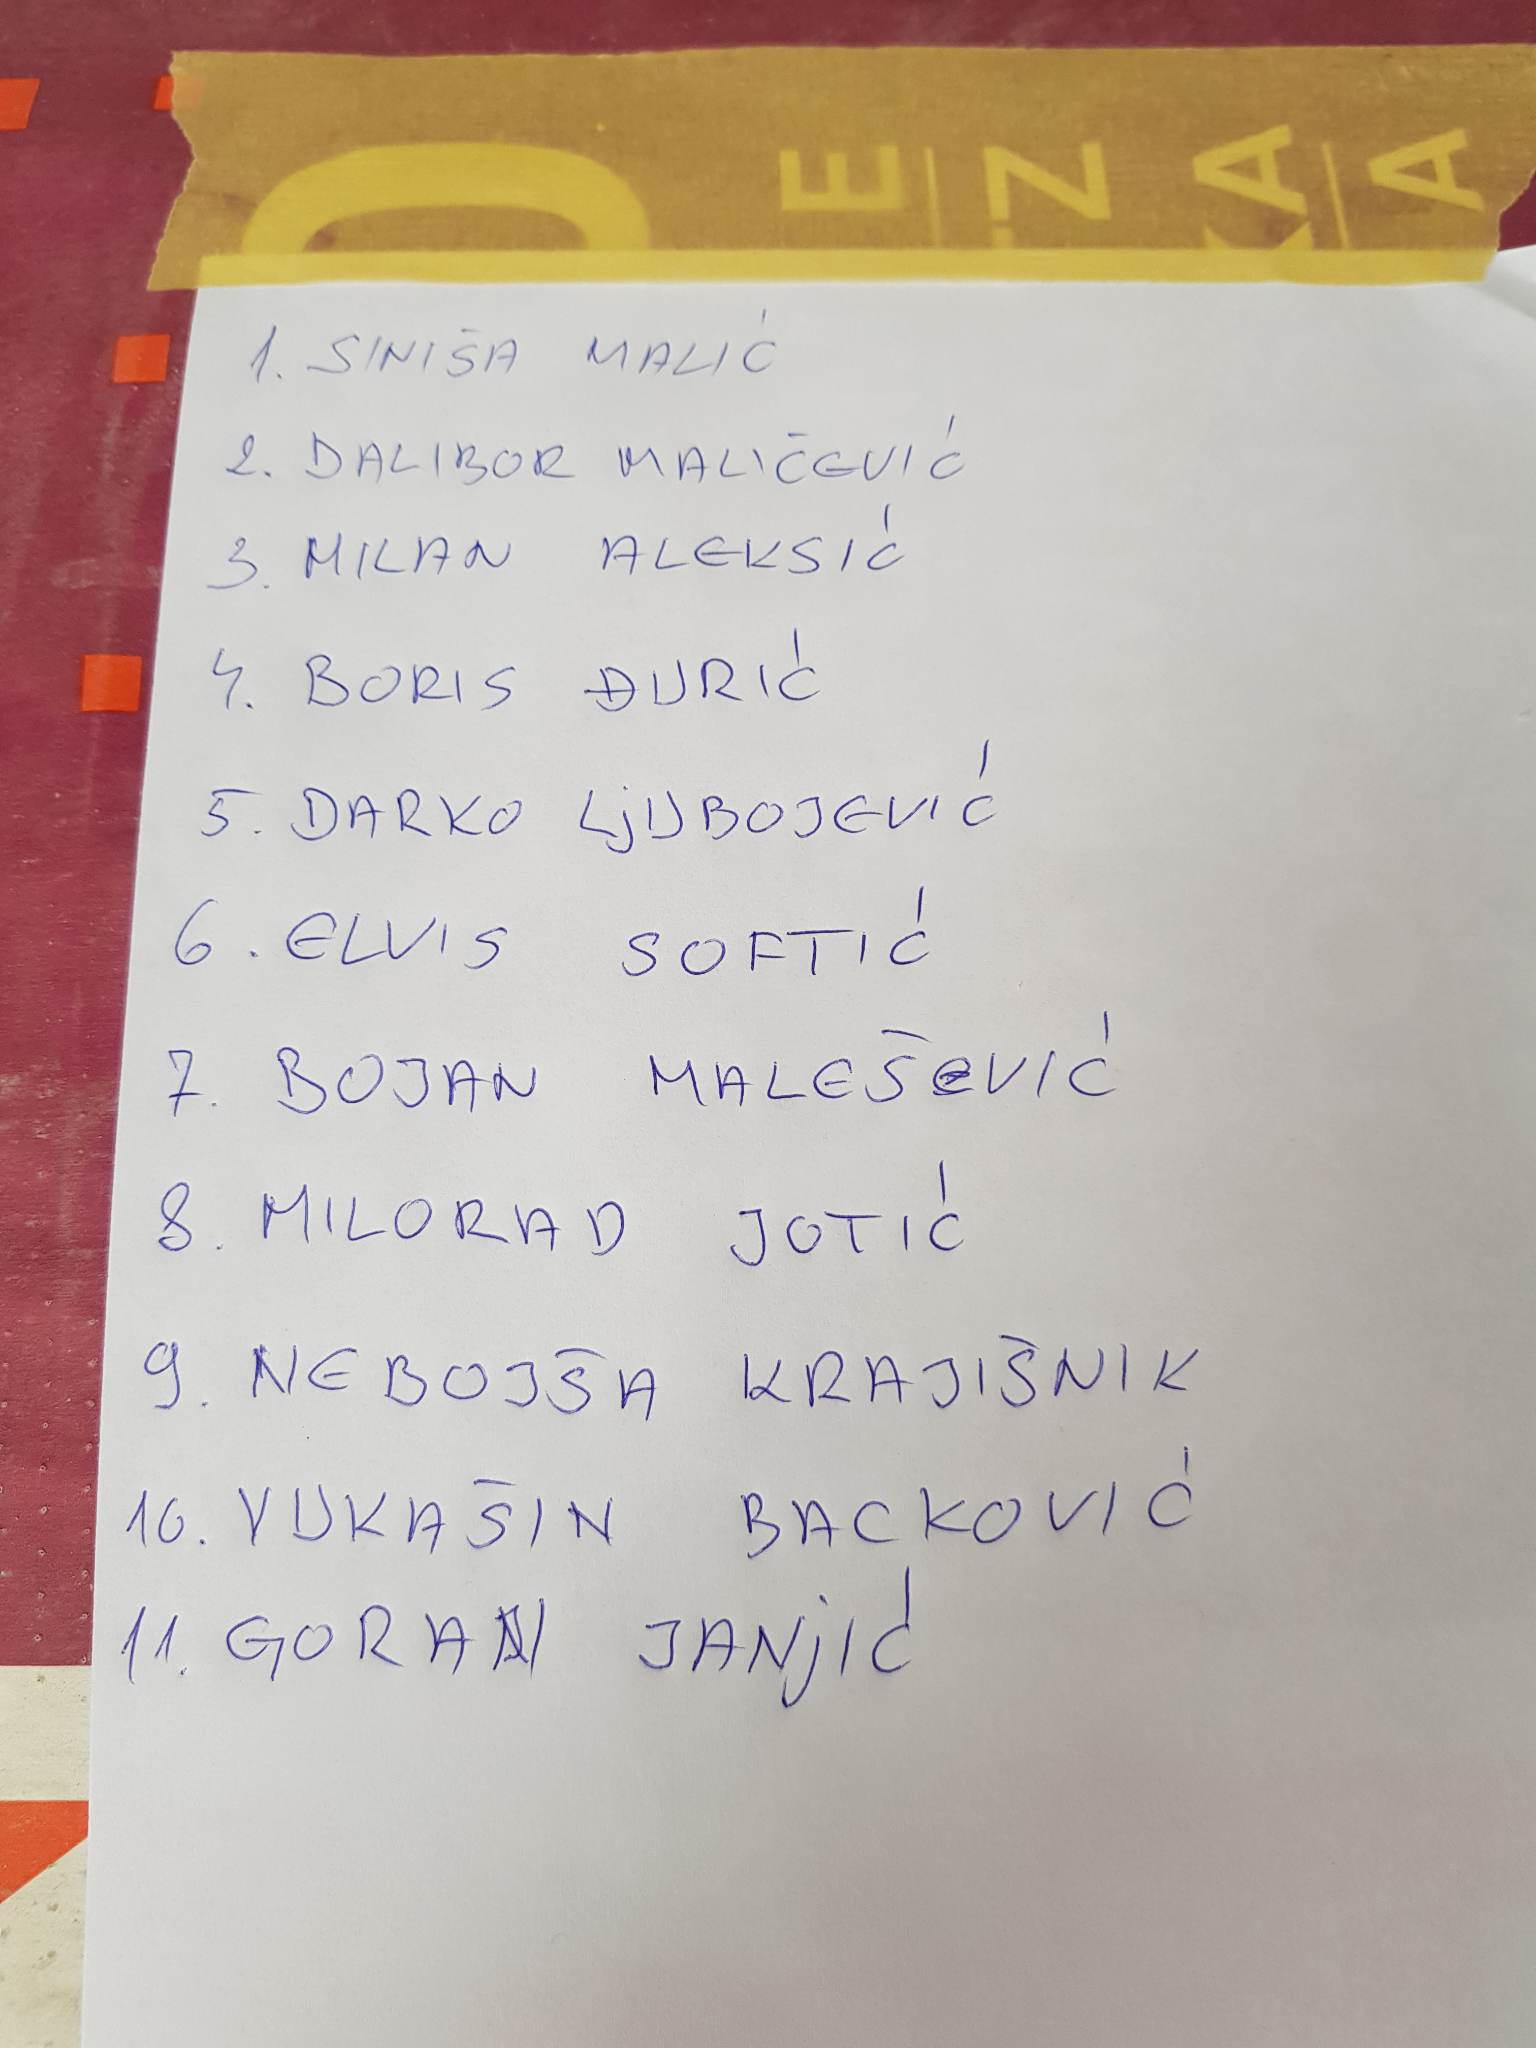 E
Z
KA
A
1. SINIŠA MALIĆ
2. DALIBOR MALIČEVIĆ
3. MILAN ALEKSIĆ
4. BORIS ĐURIĆ
5. DARKO LjUBOJEVIĆ
6. ELVIS SOFTIĆ
7. BOJAN MALEŠEVIĆ
8. MILORAD JOTIĆ
9. NEBOJŠA KRAJIŠNIK
10. VUKAŠIN BACKOVIĆ
11. GORAN JANjIĆ